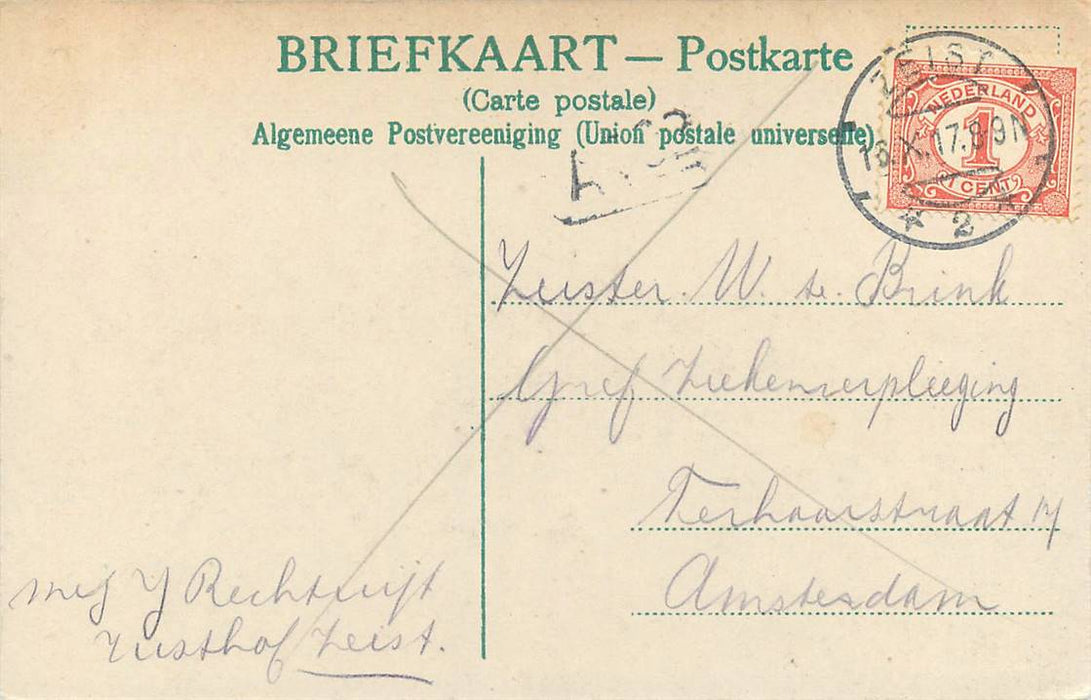 BRIEFKAART — Postkarte
(Carte postale)
Algemeene Postvereeniging (Union postale universelle)
ZEIST
NEDERLAND
16.X.17.8-9N
1
1 CENT
2
Zuster W. te. Brink
Ziekenverpleeging
Terhaarstraat 17
Amsterdam
mej Y
Rusthof Zeist.